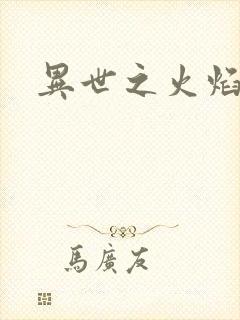 異世之火焰
馬廣友